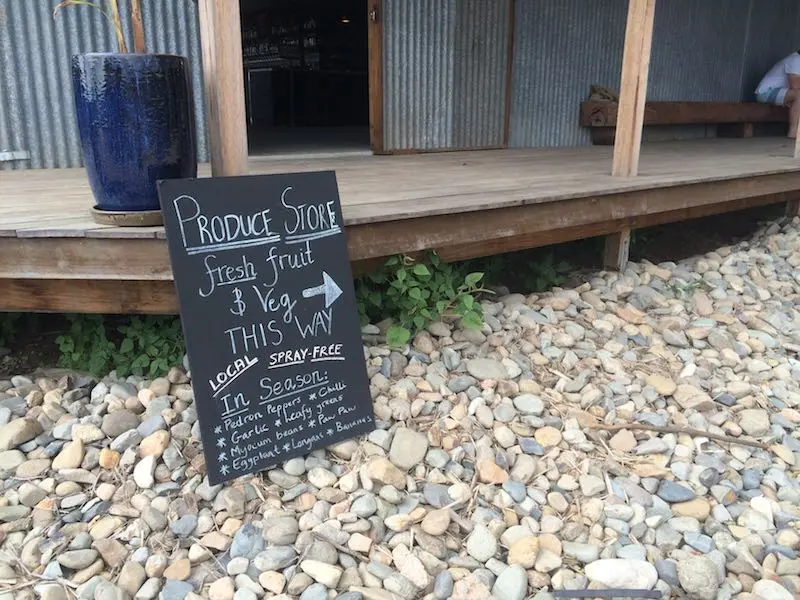 PRODUCE STORE
fresh fruit
& Veg →
THIS WAY
LOCAL SPRAY-FREE
In Season:
* Pedron Peppers * Chilli
* Garlic * Leafy greens
* Myocum beans * Paw Paw
* Eggplant * Longan * Bananas